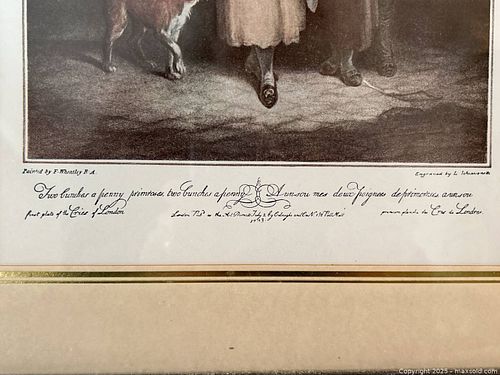 Painted by F. Wheatley R.A.
Engraved by L. Schiavonetti
Two bunches a penny primroses, two bunches a penny
A un sou mes deux poignees de primeveres a un sou
first plate of the Cries of London
London Pub as the Act Directs July 2 by Colnaghi and Co No Pall Mall
1793
premiere planche des Cris de Londres
Copyright 2025 - maxsold.com